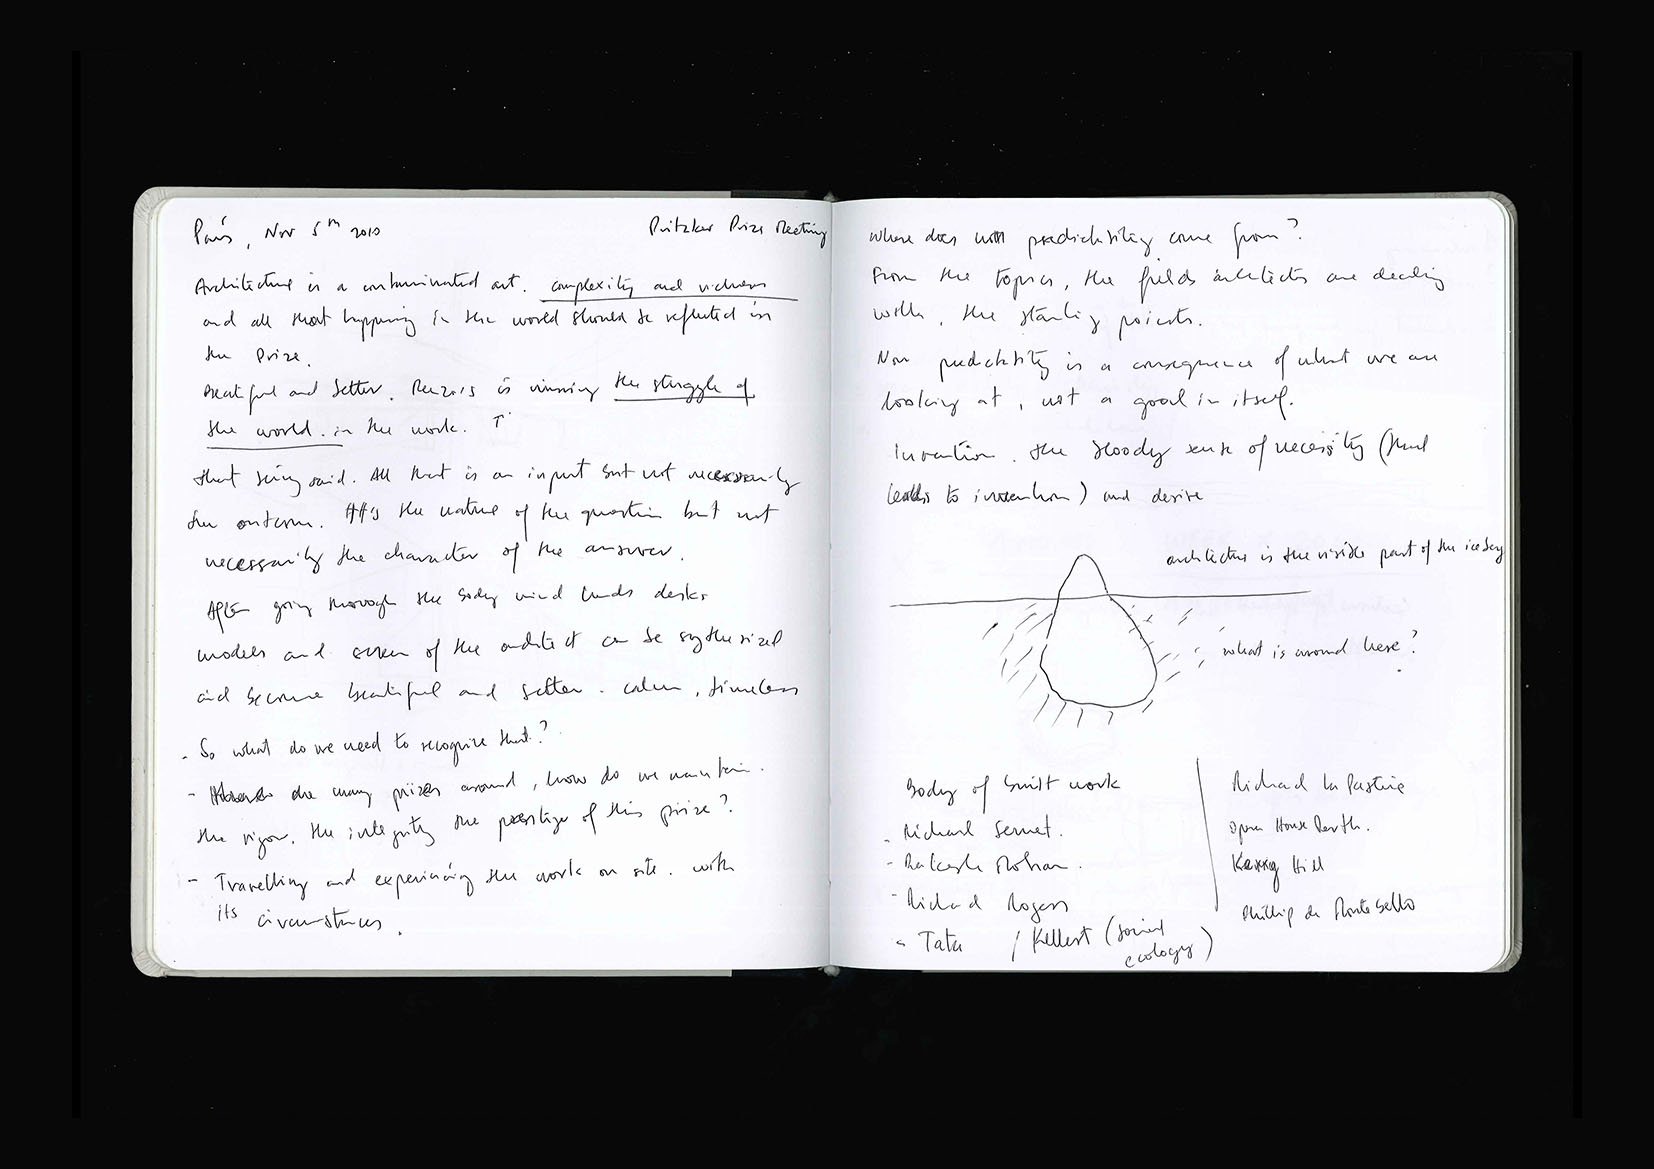 París, Nov 5th 2010
Pritzker Prize Meeting
Architecture is a contaminated art. complexity and richness
and all that happening in the world should be reflected in
the Prize.
Beautiful and better. is missing the struggle of
the world. in the work. T
that being said. All that is an input but not necessarily
the outcome. It's the nature of the question but not
necessarily the character of the answer.
After going through the body mind hands desks
models and screen of the architect can be sythesized
and become beautiful and better. calm, timeless
- So what do we need to recognize that?
- are many prizes around, how do we maintain.
the rigor, the integrity the prestige of this prize?
- Travelling and experiencing the work on site. with
its circumstances.
Where does non predictability come from?
From the topics, the fields architects are dealing
with, the starting points.
Non predictability is a consequence of what we are
looking at, not a good in itself.
Invention. the bloody sense of necessity (that
leads to invention) and desire
architecture is the visible part of the iceberg
what is around here?
Body of built work
- Richard Sennet.
- Rakesh Mohan.
- Richard Rogers
- Tata / Kellert (social
ecology)
Richard la Pastine
Open House Perth.
Kerry Hill
Phillip de Montebello